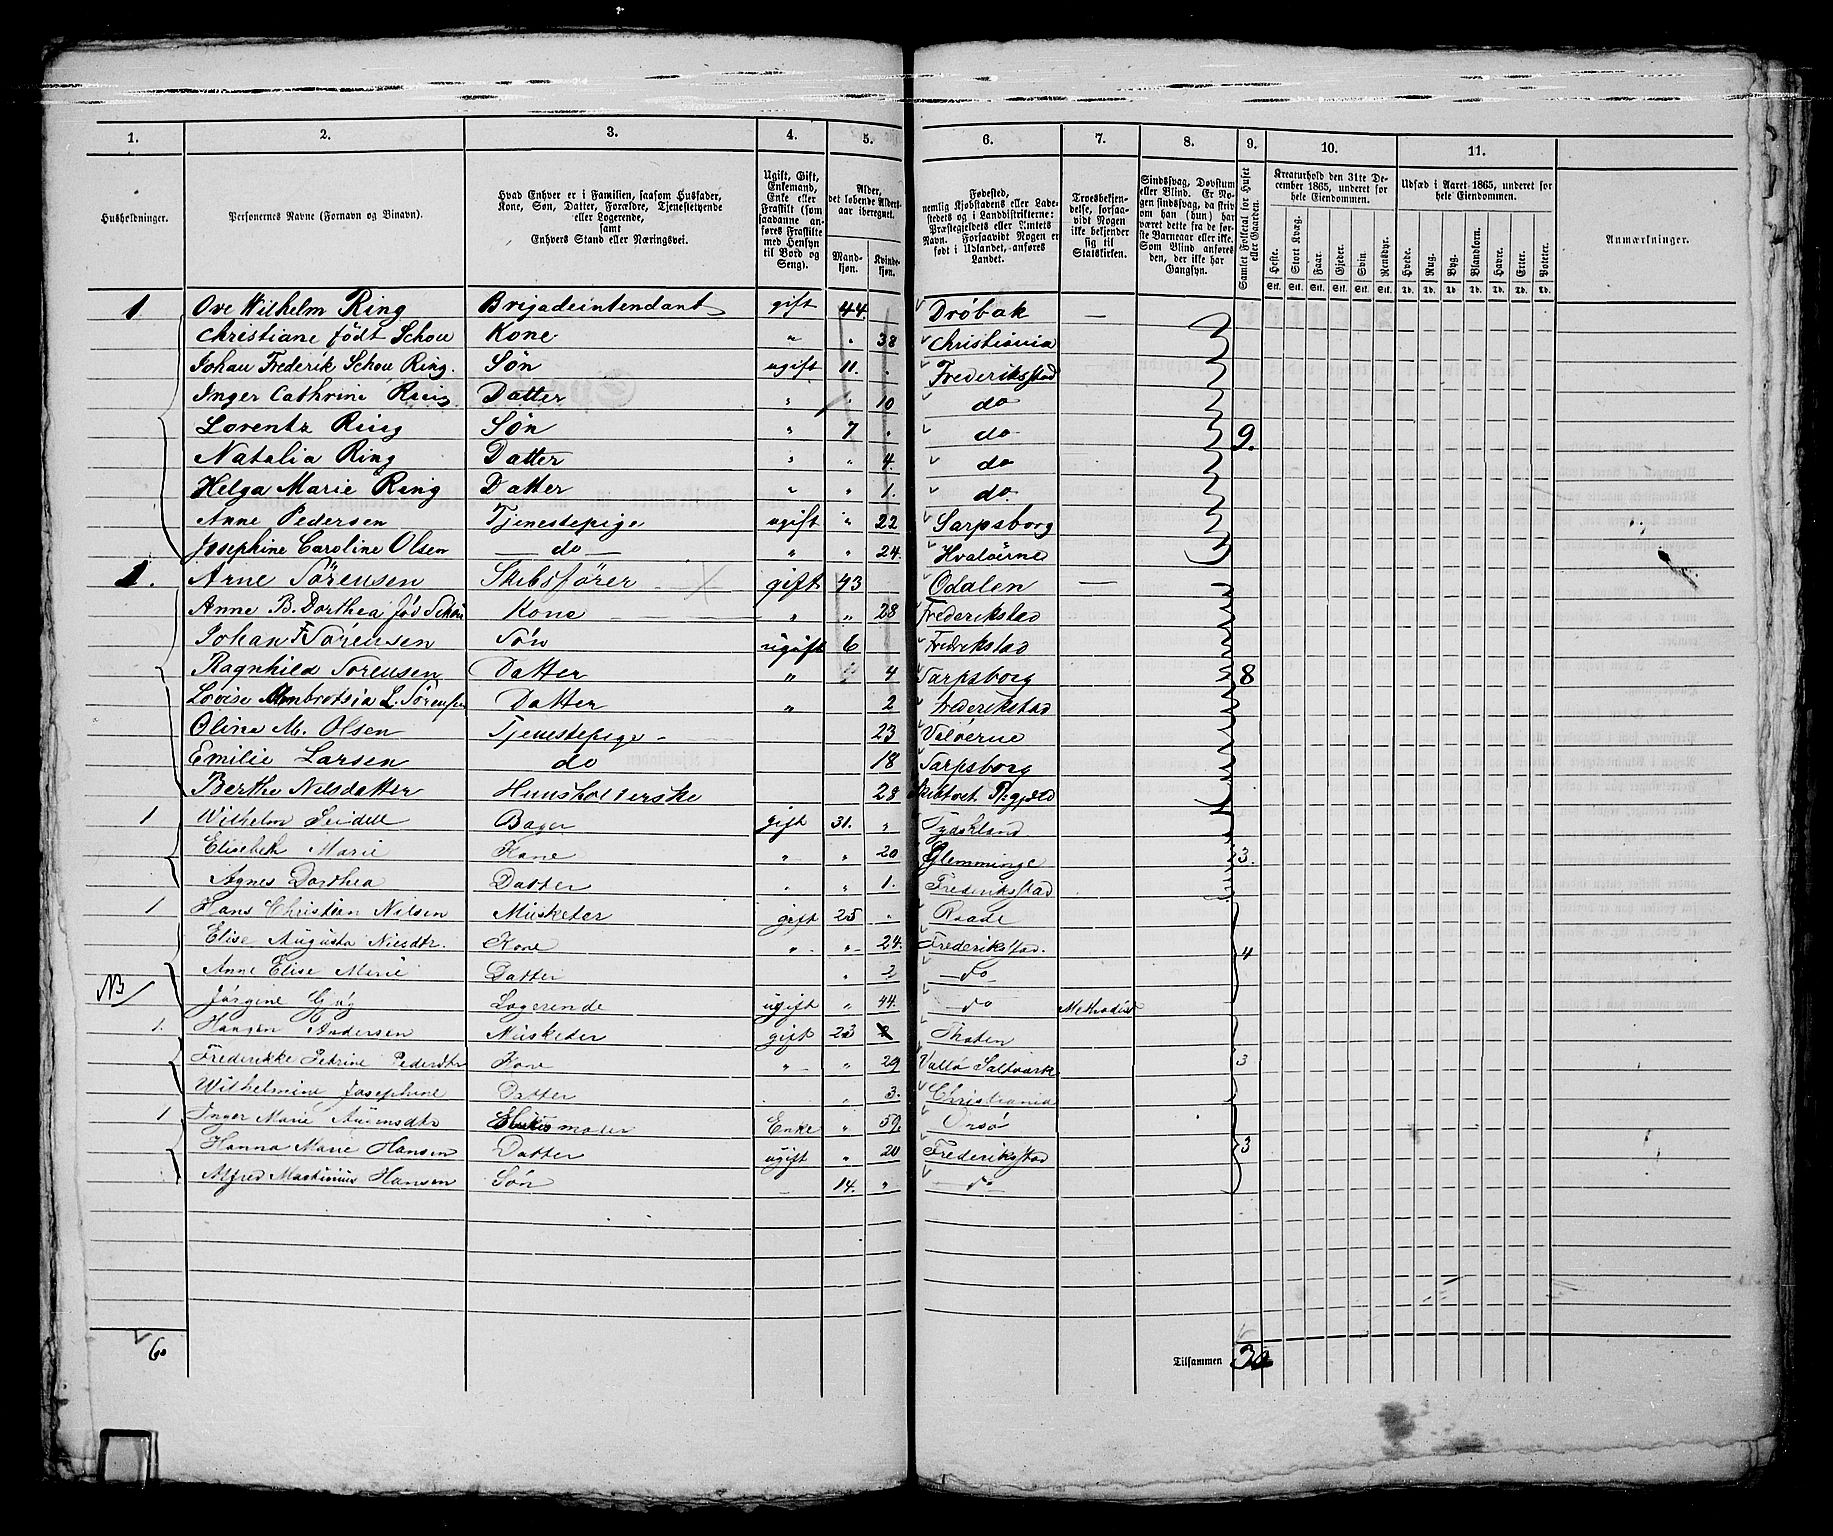 1. 2. 3. 4. 5. 6. 7. 8. 9. 10. 11.
Husholdninger.
Personernes Navne (Fornavn og Binavn).
Hvad Enhver er i Familien, saasom Husfader, Kone, Søn, Datter, Forældre, Tjenestetyende eller Logerende, samt Enhvers Stand eller Næringsvei.
Ugift, Gift, Enkemand, Enke eller Fraskilt (som saadanne anføres Fraskilte med Hensyn til Bord og Seng).
Alder, det løbende Aldersaar iberegnet.
Mandkjøn. Kvindekjøn.
Fødested, nemlig Kjøbstadens eller Ladestedets og i Landdistrikterne: Præstegjeldets eller Amtets Navn. Forsaavidt Nogen er født i Udlandet, anføres Landet.
Troesbekjendelse, forsaavidt Nogen ikke bekjender sig til Statskirken.
Sindssvag, Døvstum eller Blind. Er Nogen sindssvag, da skrives om han (hun) har været dette fra de første Barneaar eller ikke. Som Blind anføres den, der ikke har Gangsyn.
Samlet Folketal for Huset eller Gaarden.
Kreaturhold den 31te December 1865, underet for hele Eiendommen.
Heste. Stort Kvæg. Faar. Gjeder. Svin. Rensdyr.
Stk. Stk. Stk. Stk. Stk. Stk.
Udsæd i Aaret 1865, underet for hele Eiendommen.
Hvede. Rug. Byg. Blandkorn. Havre. Erter. Poteter.
Td. Td. Td. Td. Td. Td. Td.
Anmærkninger.
1 Ove Wilhelm Ring Brigadeintendant gift 44. Drøbak —
Christiane født Schou Kone " " 38 Christiania
Johan Frederik Schou Ring. Søn ugift 11. . Frederiksstad
Inger Cathrine Ring Datter " " 10 do
Lorentz Ring Søn " 7 " do 9.
Natalia Ring Datter " " 4. do
Helga Marie Ring Datter " " 1. do
Anne Pedersen Tjenestepige ugift " 22 Sarpsborg
Josephine Caroline Olsen — do — " " 24. Hvaløerne
1. Arne Sörensen Skibsfører gift 43 Odalen —
Anne B. Dorthea fød Schou Kone " " 28 Frederikstad
Johan F Sörensen Søn ugift 6 Fredrikstad
Ragnhild Sorensen Datter " " 4 Sarpsborg 8
Lovise Ambrotsia L. Sörensen Datter " 2 Frederikstad
Oline M. Olsen Tjenestepige 23 Valøerne
Emilie Larsen do 18 Sarpsborg
Berthe Nilsdatter Huusholderske 28 Pr.gjeld
1 Wilhelm Seidell Bager gift 31. " Tydskland
Elisebeth Marie Kone " " 20 Glemminge 3.
Agnes Dorthea Datter " " 1. Frederiksstad
1 Hans Christian Nilsen Musketer gift 25 " Raade
Elise Augusta Nielsdtr. Kone " " 24. Frederikstad. 4
Anne Elise Marie Datter " 2 do
NB Jørgine Logerende ugift " 44. do Methodist
1. Hangen Andersen Musketer gift 23
Frederikke Petrine Pedersdtr Kone " " 29 Vallø Saltværk 3
Wilhelmine Josephine Datter . " 3. Christiania
1 Inger Marie moder Enke " 59. Onsø
Hanna Marie Hansen Datter ugift " 20 Frederiksstad 3
Alfred Martinius Hansen Søn — 14. " do
6
Tilsammen 30